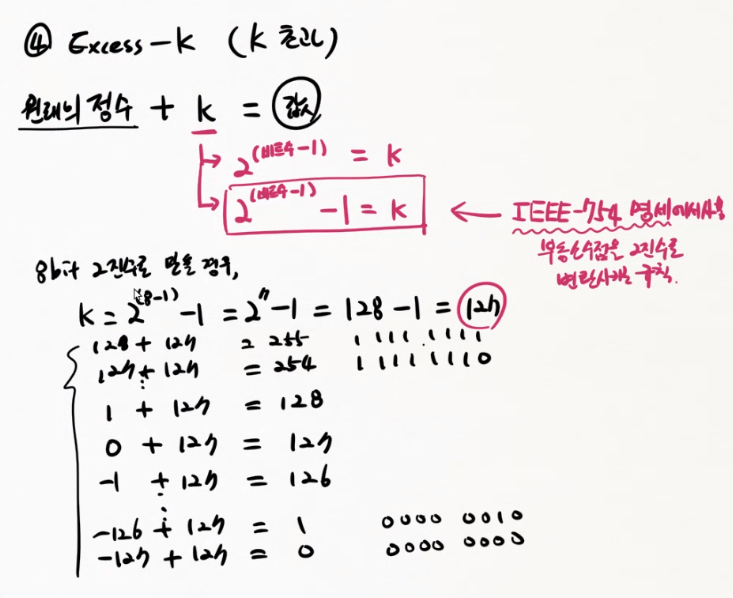 ④ Excess-K (K 초과)
원래의 정수 + k = 값
2^(비트수-1) = k
2^(비트수-1) - 1 = k ← IEEE-754 명세에서 사용
부동소수점을 2진수로
변환시키는 규칙.
8bit 2진수로 만들 경우,
k = 2^(8-1) - 1 = 2^7 - 1 = 128 - 1 = 127
128 + 127 = 255 1111 1111
127 + 127 = 254 1111 1110
⋮
1 + 127 = 128
0 + 127 = 127
-1 + 127 = 126
⋮
-126 + 127 = 1 0000 0010
-127 + 127 = 0 0000 0000